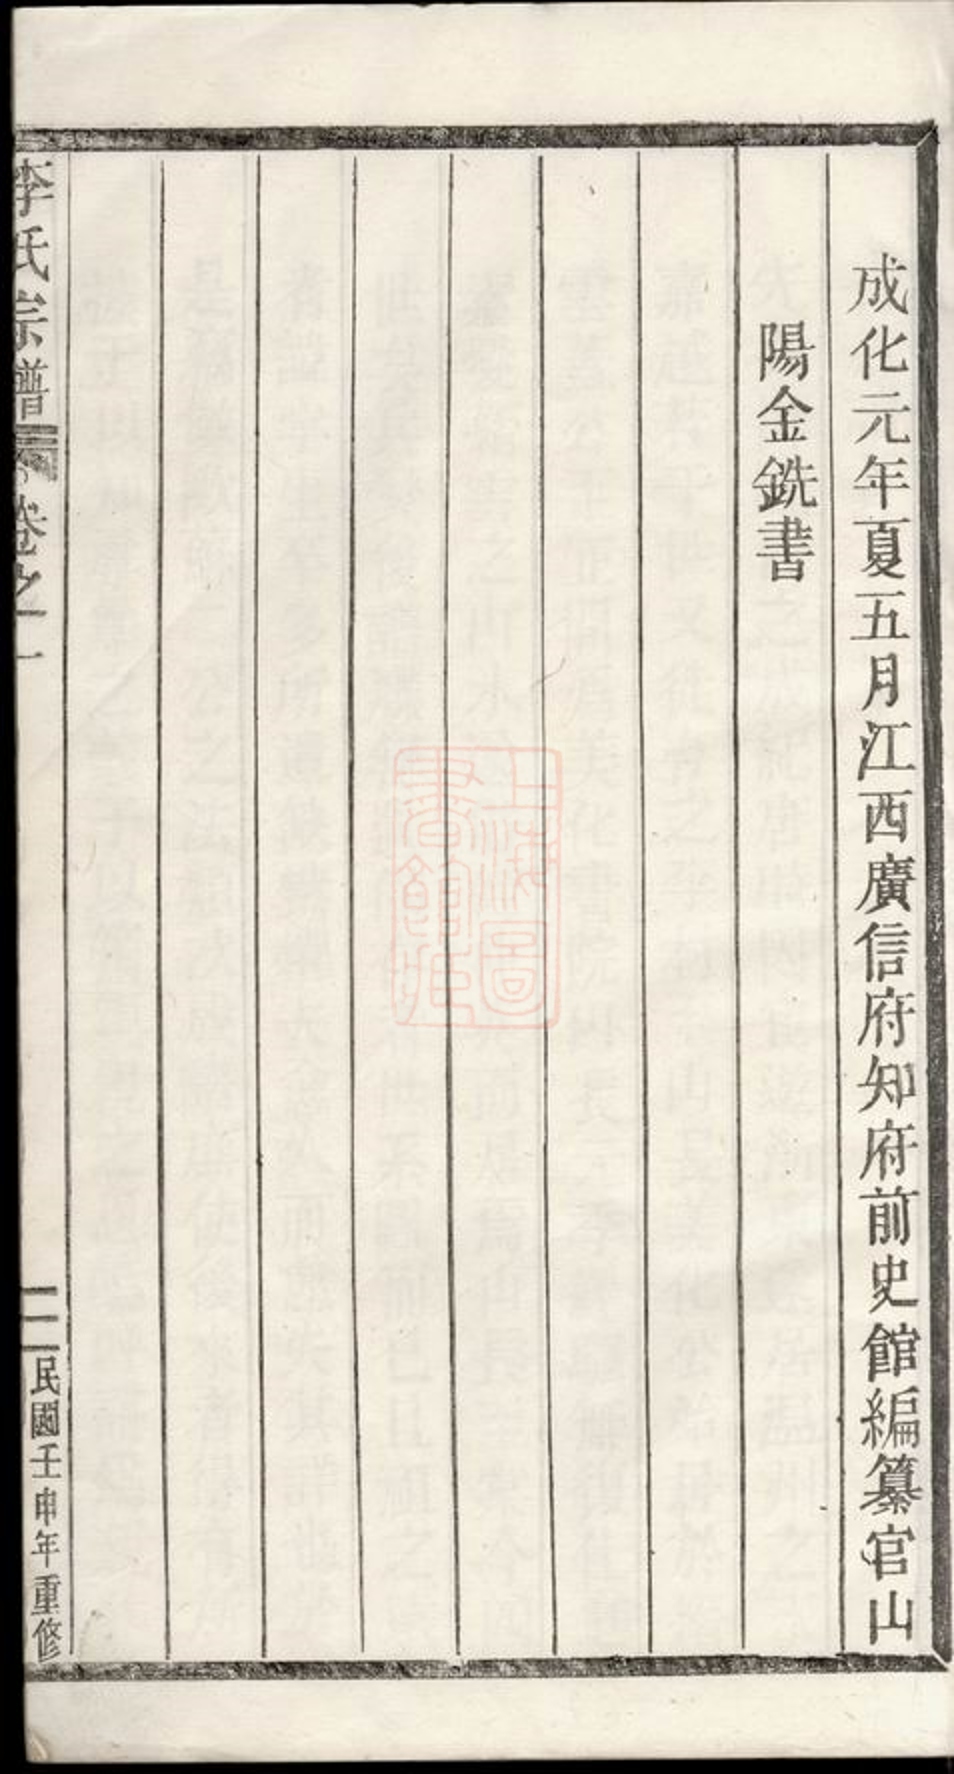 成化元年夏五月江西廣信府知府前史館編纂官山
陽金銑書
李氏宗譜
卷之一
二
民國壬申年重修
上海圖書館藏